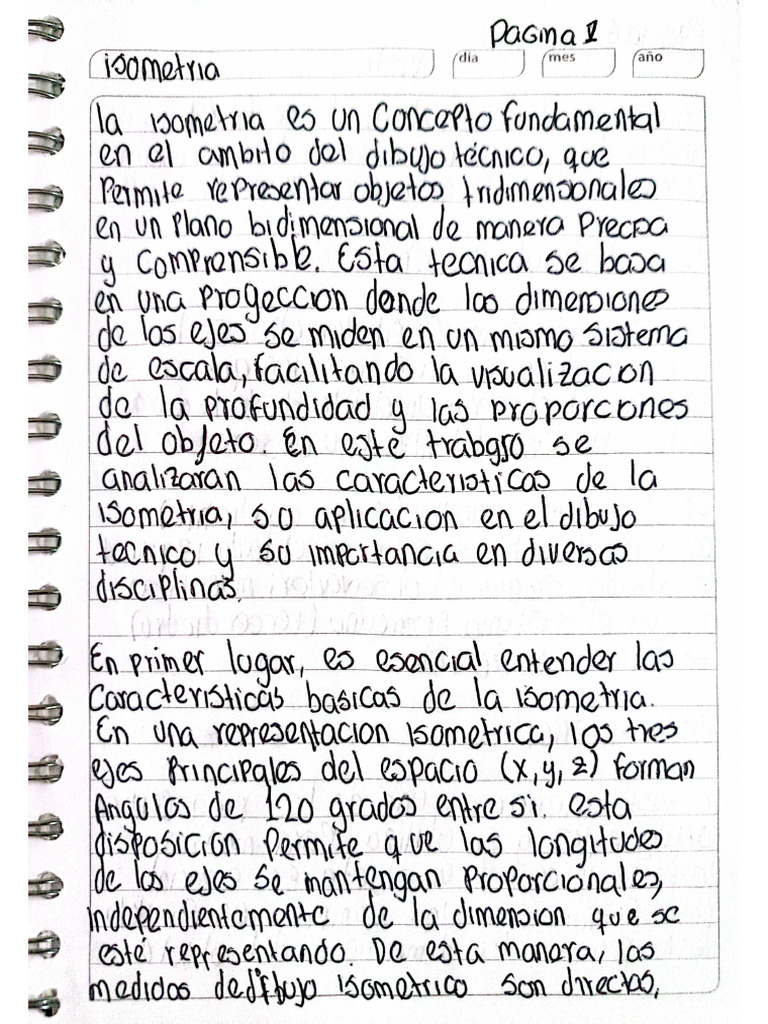 Pagina 1
isometria
día
mes
año
la isometria es un concepto fundamental
en el ambito del dibujo técnico, que
Permite representar objetos tridimensionales
en un plano bidimensional de manera Precisa
y comprensible. Esta tecnica se basa
en una progeccion donde las dimensiones
de los ejes se miden en un mismo sistema
de escala, facilitando la visualizacion
de la profundidad y las proporciones
del objeto. En este trabajo se
analizaran las caracteristicas de la
isometria, su aplicacion en el dibujo
tecnico y su importancia en diversas
disciplinas.
En primer lugar, es esencial entender las
Características basicas de la isometria.
En una representacion isometrica, los tres
ejes principales del espacio (x, y, z) forman
Angulos de 120 grados entre si. esta
disposición Permite que las longitudes
de los ejes se mantengan Proporcionales,
independientemente de la dimension que se
esté representando. De esta manera, las
medidas de dibujo isometrico son directas,